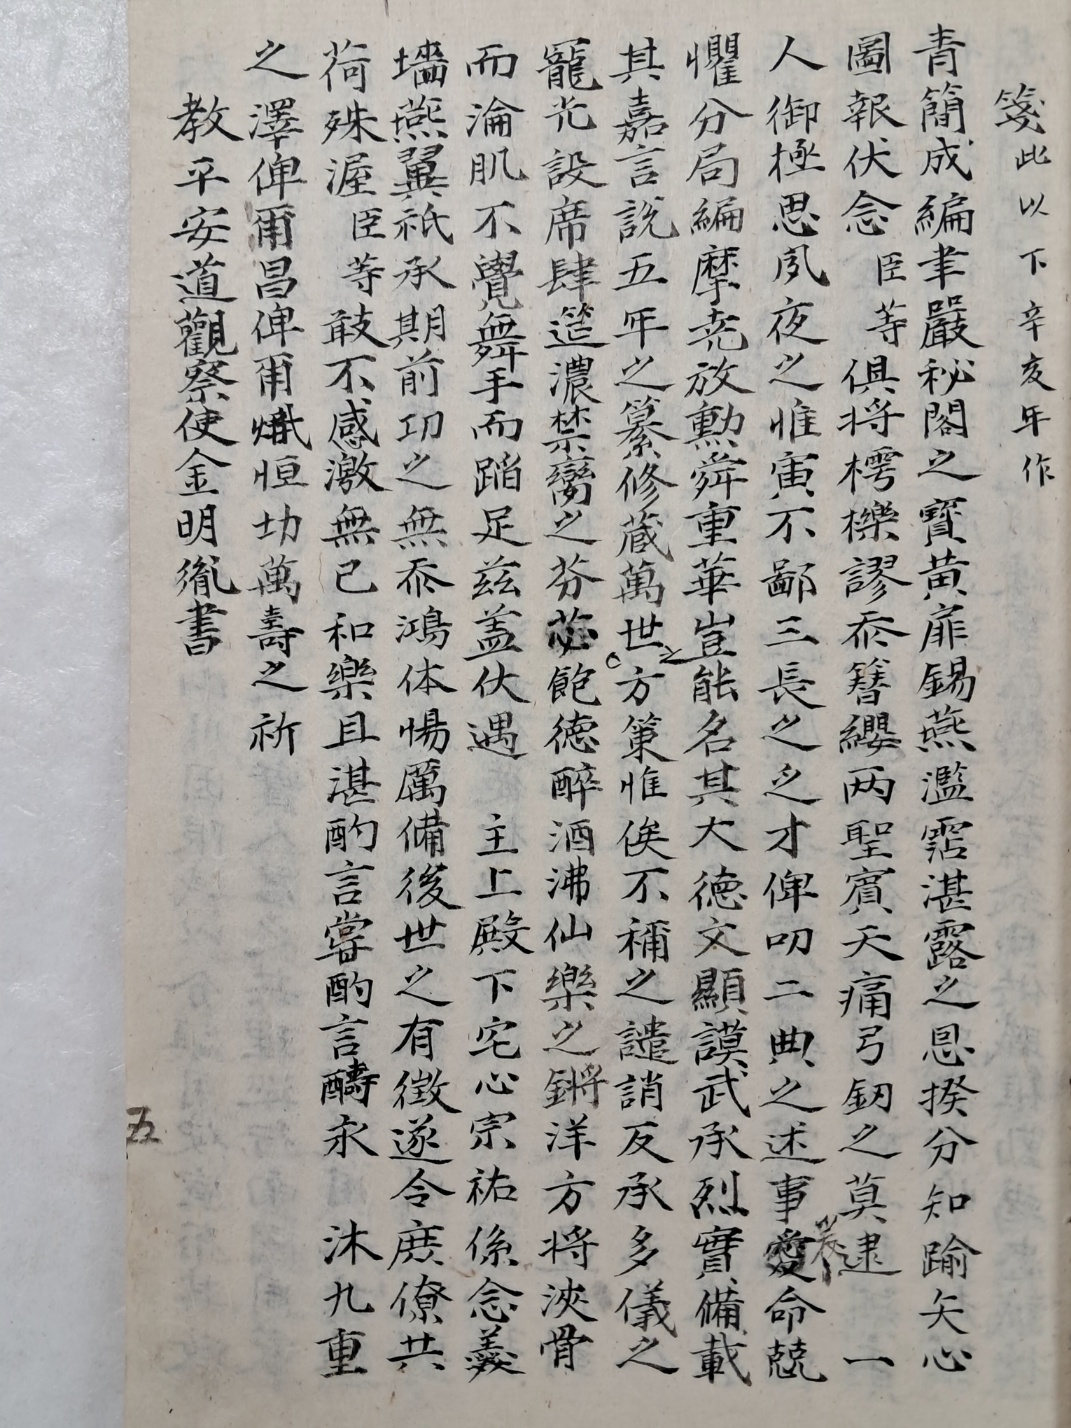 箋此以下辛亥年作
青簡成編聿嚴秘閣之寳黃扉錫燕濫霑湛露之恩揆分知踰矢心
圖報伏念臣等俱將樗櫟謬忝簪纓两聖賓天痛弓釰之莫逮一
人御極思夙夜之惟寅不鄙三長之乏才俾叨二典之述事爰命兢
懼分局編摩尭放勲舜重華豈能名其大德文顯謨武承烈實備載
其嘉言說五年之纂修蔵萬世之方策惟俟不禰之譴誚反承多儀之
寵光設席肆筵濃禁臠之芬苾飽德醉酒沸仙樂之鏘洋方將浹骨
而淪肌不覺舞手而蹈足茲盖伏遇 主上殿下宅心宗祐係念羹
墻燕翼祇承期前功之無忝鴻体惕厲備後世之有徵遂令庶僚共
荷殊渥臣等敢不感激無已和樂且湛酌言嘗酌言醻永 沐九重
之澤俾爾昌俾爾熾恒切萬壽之祈
教平安道觀察使金明胤書
五